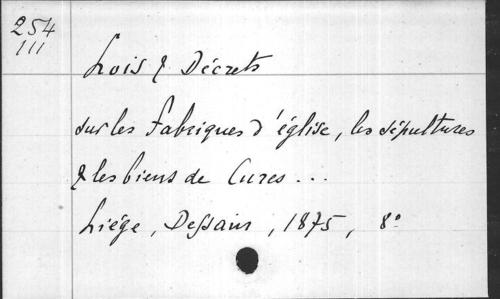 254
111
Lois & Décrets
sur les Fabriques d'église, les sépultures
& les biens de Cures ...
Liége, Dessain, 1875, 8°